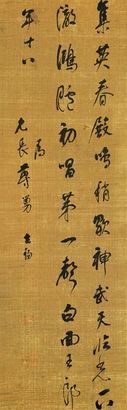 集英春殿鳴梢歇神武天臨光下
澈鴻臚初唱第一聲白面王郎
年十八
為
允長尊舅